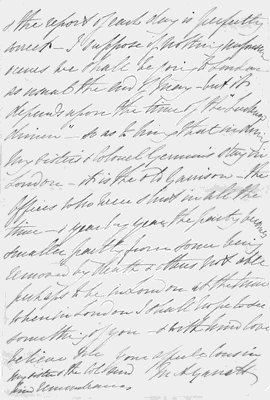 & the report of each day is perfectly
correct - I suppose if nothing unforeseen
occurs we shall be going to London
as usual the end of May - but it
depends upon the time of the
dinner" - so as to bring that in during
my sister & Colonel stay in
London - it is the old Garrison - the
officers who were shut in all the
time - & year by year the party becomes
smaller partly from some being
removed by death & others not able
perhaps to be in London at the time
when in London I shall hope to see
something of you - & with kind love
believe me your affec cousin
my sister & the Col send
kind remembrances